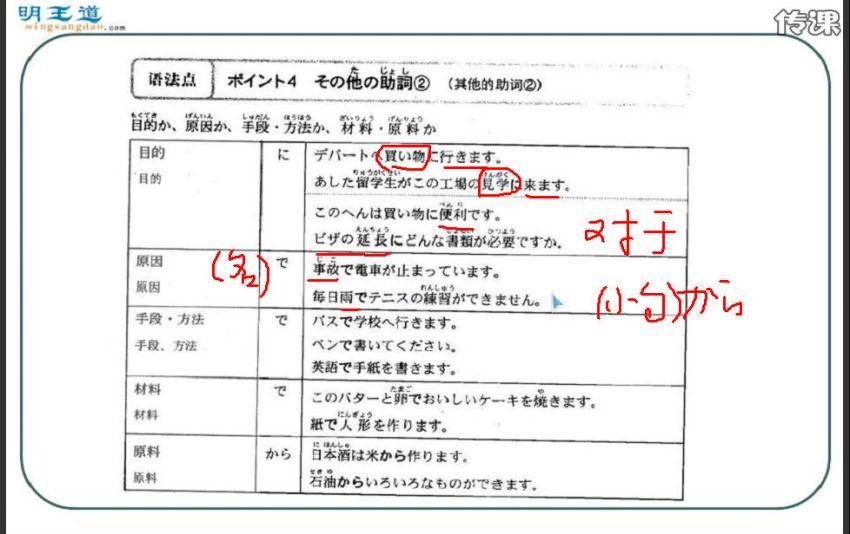 明王道
mingwangdao.com
传课
语法点 ポイント4 その他の助詞② (其他的助词②)
目的か、原因か、手段・方法か、材料・原料か
目的 に デパートへ買い物に行きます。
目的 あした留学生がこの工場の見学に来ます。
このへんは買い物に便利です。
ビザの延長にどんな書類が必要ですか。
对于
原因 (名) で 事故で電車が止まっています。
原因 毎日雨でテニスの練習ができません。
(小句)から
手段・方法 で バスで学校へ行きます。
手段、方法 ペンで書いてください。
英語で手紙を書きます。
材料 で このバターと卵でおいしいケーキを焼きます。
材料 紙で人形を作ります。
原料 から 日本酒は米から作ります。
原料 石油からいろいろなものができます。